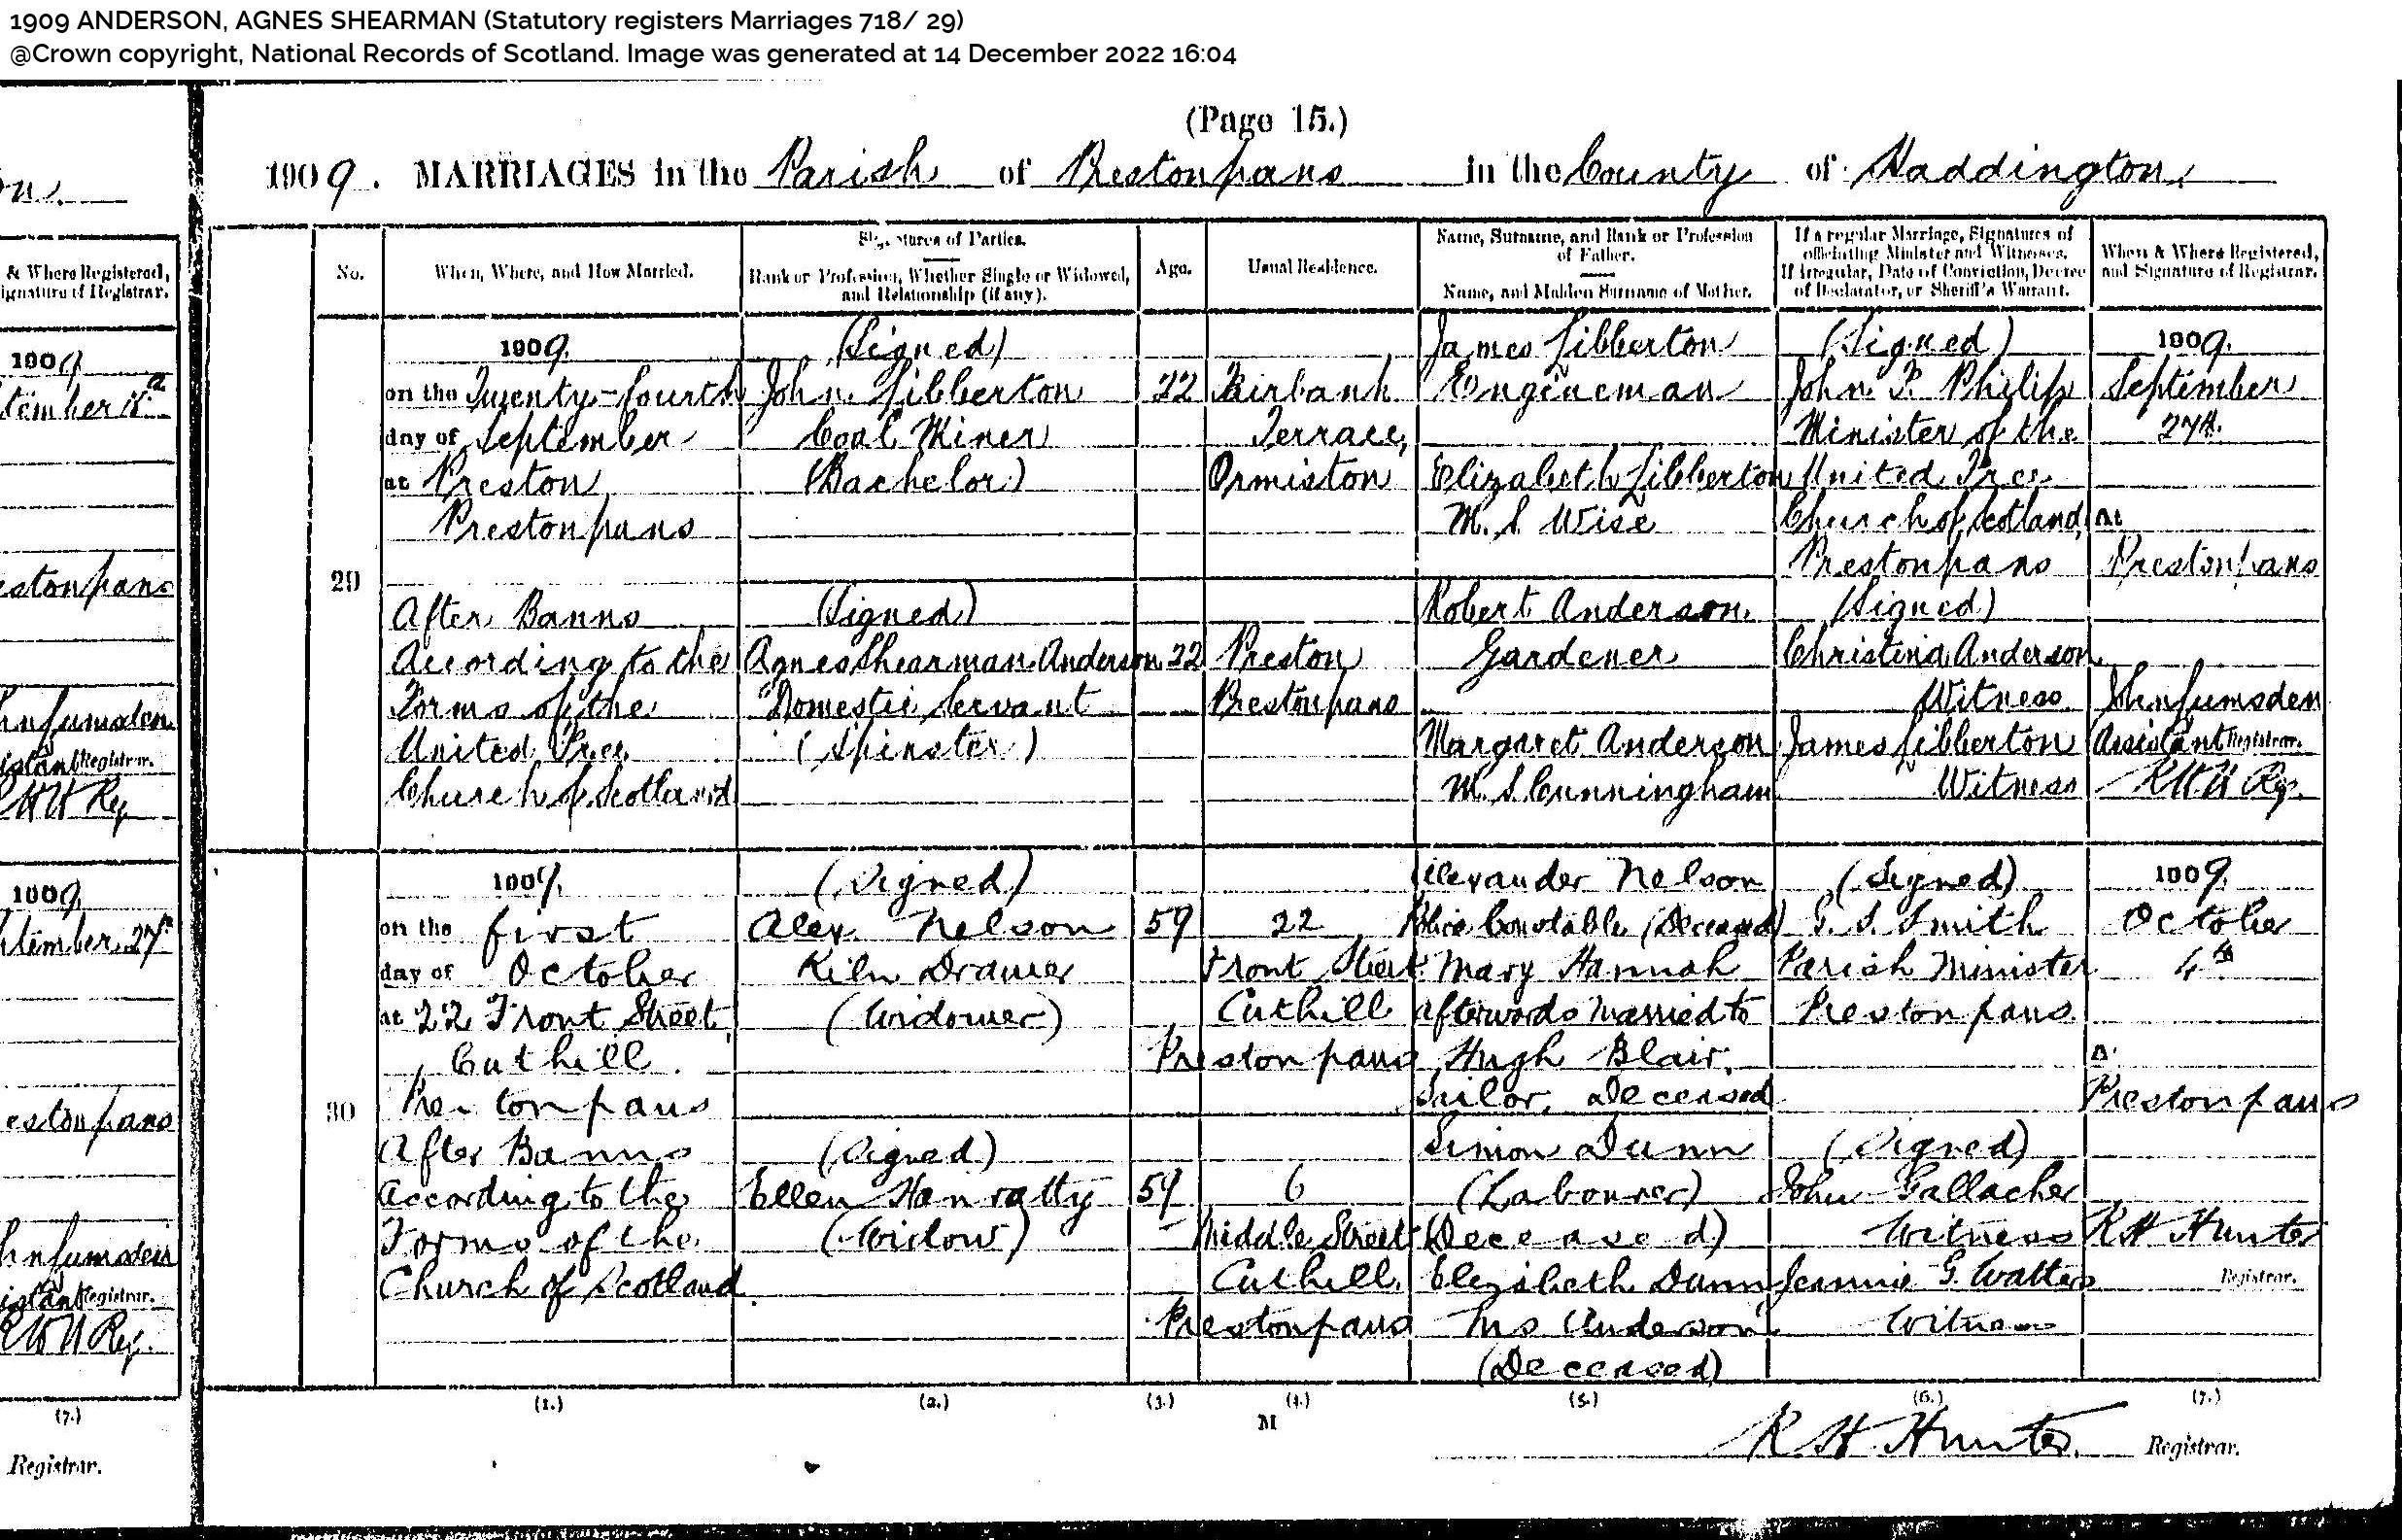 1909 ANDERSON, AGNES SHEARMAN (Statutory registers Marriages 718/ 29)
@Crown copyright, National Records of Scotland. Image was generated at 14 December 2022 16:04
(Page 15.)
1909. MARRIAGES in the Parish of Prestonpans in the County of Haddington.
No.
When, Where, and How Married.
Signatures of Parties.
Rank or Profession, Whether Single or Widowed,
and Relationship (if any).
Age.
Usual Residence.
Name, Surname, and Rank or Profession
of Father.
Name, and Maiden Surname of Mother.
If a regular Marriage, Signatures of
officiating Minister and Witnesses.
If Irregular, Date of Conviction, Decree
of Declarator, or Sheriff's Warrant.
When & Where Registered,
and Signature of Registrar.
& Where Registered,
ignature of Registrar.
1909
tember
estonpans
hn Lumsden
istant Registrar.
Reg
1909
tember 27th
estonpans
hn Lumsden
istant Registrar.
Reg.
(7.)
Registrar.
29
1909.
on the Twenty-fourth
day of September
at Preston
Prestonpans
After Banns
According to the
Forms of the
United Free
Church of Scotland
(Signed)
John Libberton
Coal Miner
(Bachelor)
(Signed)
Agnes Shearman Anderson
Domestic Servant
(Spinster)
22
22
Fairbank
Terrace,
Ormiston
Preston
Prestonpans
James Libberton
Engineman
Elizabeth Libberton
M. S. Wise
Robert Anderson.
Gardener
Margaret Anderson
M. S. Cunningham
(Signed)
John P. Philip
Minister of the
United Free
Church of Scotland,
Prestonpans
(Signed)
Christina Anderson
Witness
James Libberton
Witness
1909.
September
27th
at
Prestonpans
John Lumsden
Assistant Registrar.
Reg.
30
1909.
on the first
day of October
at 22 Front Street
Cuthill.
Prestonpans
After Banns
According to the
Forms of the
Church of Scotland.
(Signed)
Alex. Nelson
Kiln Drawer
(Widower)
(Signed)
Ellen Hanratty
(Widow)
59
59
22
Front Street
Cuthill
Prestonpans
6
Middle Street
Cuthill
Prestonpans
Alexander Nelson
Police Constable (Deceased)
Mary Hannah
afterwards married to
Hugh Blair,
Sailor, Deceased
Simon Dunn
(Labourer)
(Deceased)
Elizabeth Dunn
Ms Anderson
(Deceased)
(Signed)
G. S. Smith
Parish Minister
Prestonpans
(Signed)
John Gallacher
Witness
Jeannie G. Walters
Witness
1909
October
4th
Prestonpans
R H Hunter
Registrar.
(1.) (2.) (3.) (4.) (5.) (6.) (7.)
M
R H Hunter. Registrar.